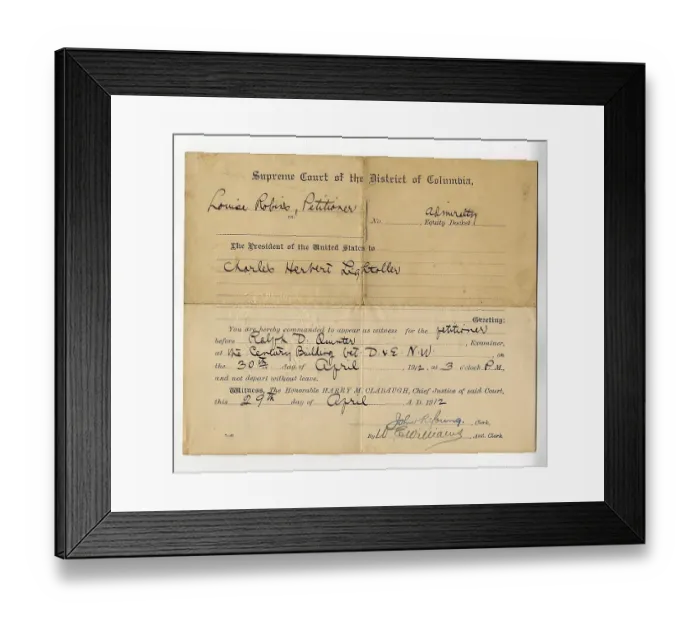 Supreme Court of the District of Columbia,
Louise Robins, Petitioner
vs.
No. Admiralty
Equity Docket
The President of the United States to
Charles Herbert Lightoller
Greeting:
You are hereby commanded to appear as witness for the petitioner
before Ralph D. Quinter, Examiner,
at the Century Building bet D & E N.W, on
the 30th day of April, 1912, at 3 o'clock P.M.,
and not depart without leave.
Witness, The Honorable HARRY M. CLABAUGH, Chief Justice of said Court,
this 29th day of April A. D. 1912
John R. Young, Clerk,
By W E Williams, Asst. Clerk